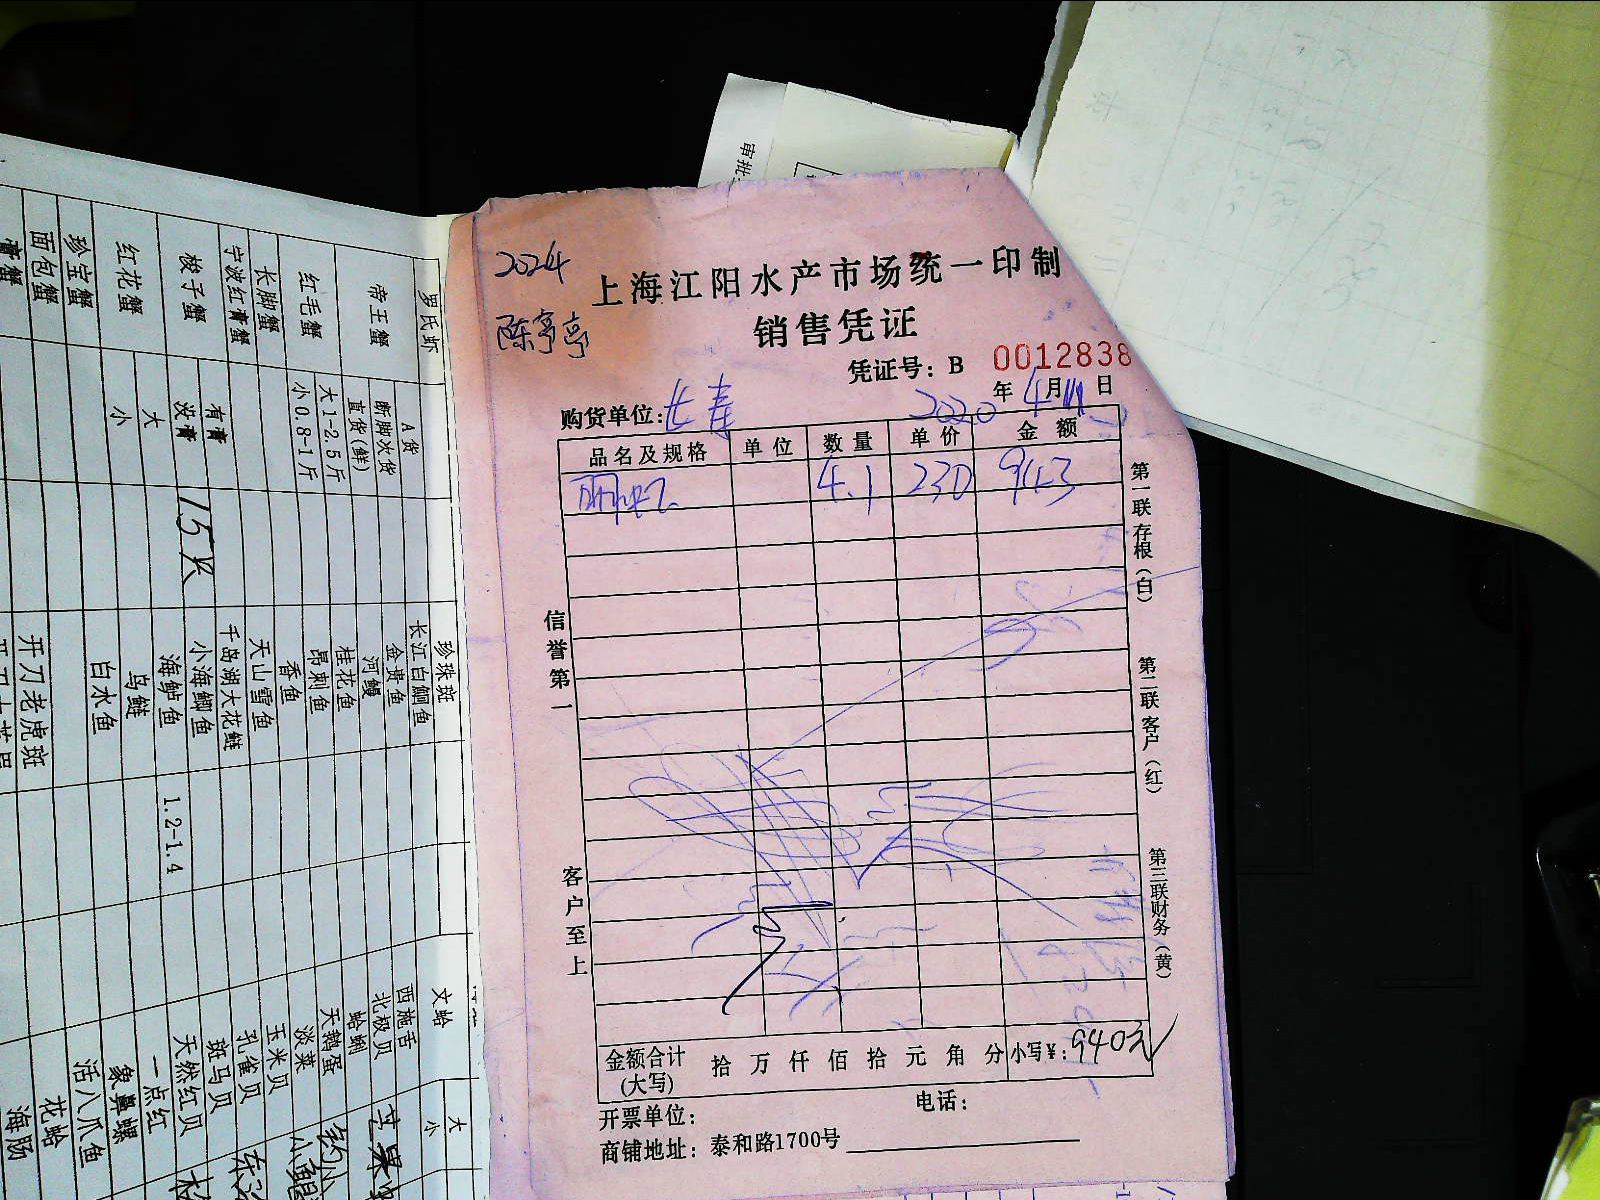 2024
陈亭亭
上海江阳水产市场统一印制
销售凭证
凭证号：B 0012838
购货单位：长寿 2020年4月日
品名及规格 单位 数量 单价 金额
4.1 230 943
信誉第一
客户至上
第一联存根（白）
第二联客户（红）
第三联财务（黄）
金额合计(大写) 拾万仟佰拾元角分 小写¥：940元
开票单位：
电话：
商铺地址：泰和路1700号
审批
罗氏虾
帝王蟹
A货
断脚次货
直货(鲜)
红毛蟹
大1-2.5斤
小0.8-1斤
长脚蟹
宁波红膏蟹
梭子蟹
有膏
没膏
15只
红花蟹
大
小
珍宝蟹
面包蟹
膏蟹
珍珠斑
长江白鮰鱼
金贵鱼
河鳗
桂花鱼
昂刺鱼
香鱼
天山雪鱼
千岛湖大花鲢
小海鲫鱼
海鲈鱼
1.2-1.4
乌鲢
白水鱼
开刀老虎斑
文蛤
大
小
西施舌
北极贝
蛤蜊
天鹅蛋
淡菜
玉米贝
孔雀贝
斑马贝
天然红贝
一点红
象鼻螺
活八爪鱼
花蛤
海肠